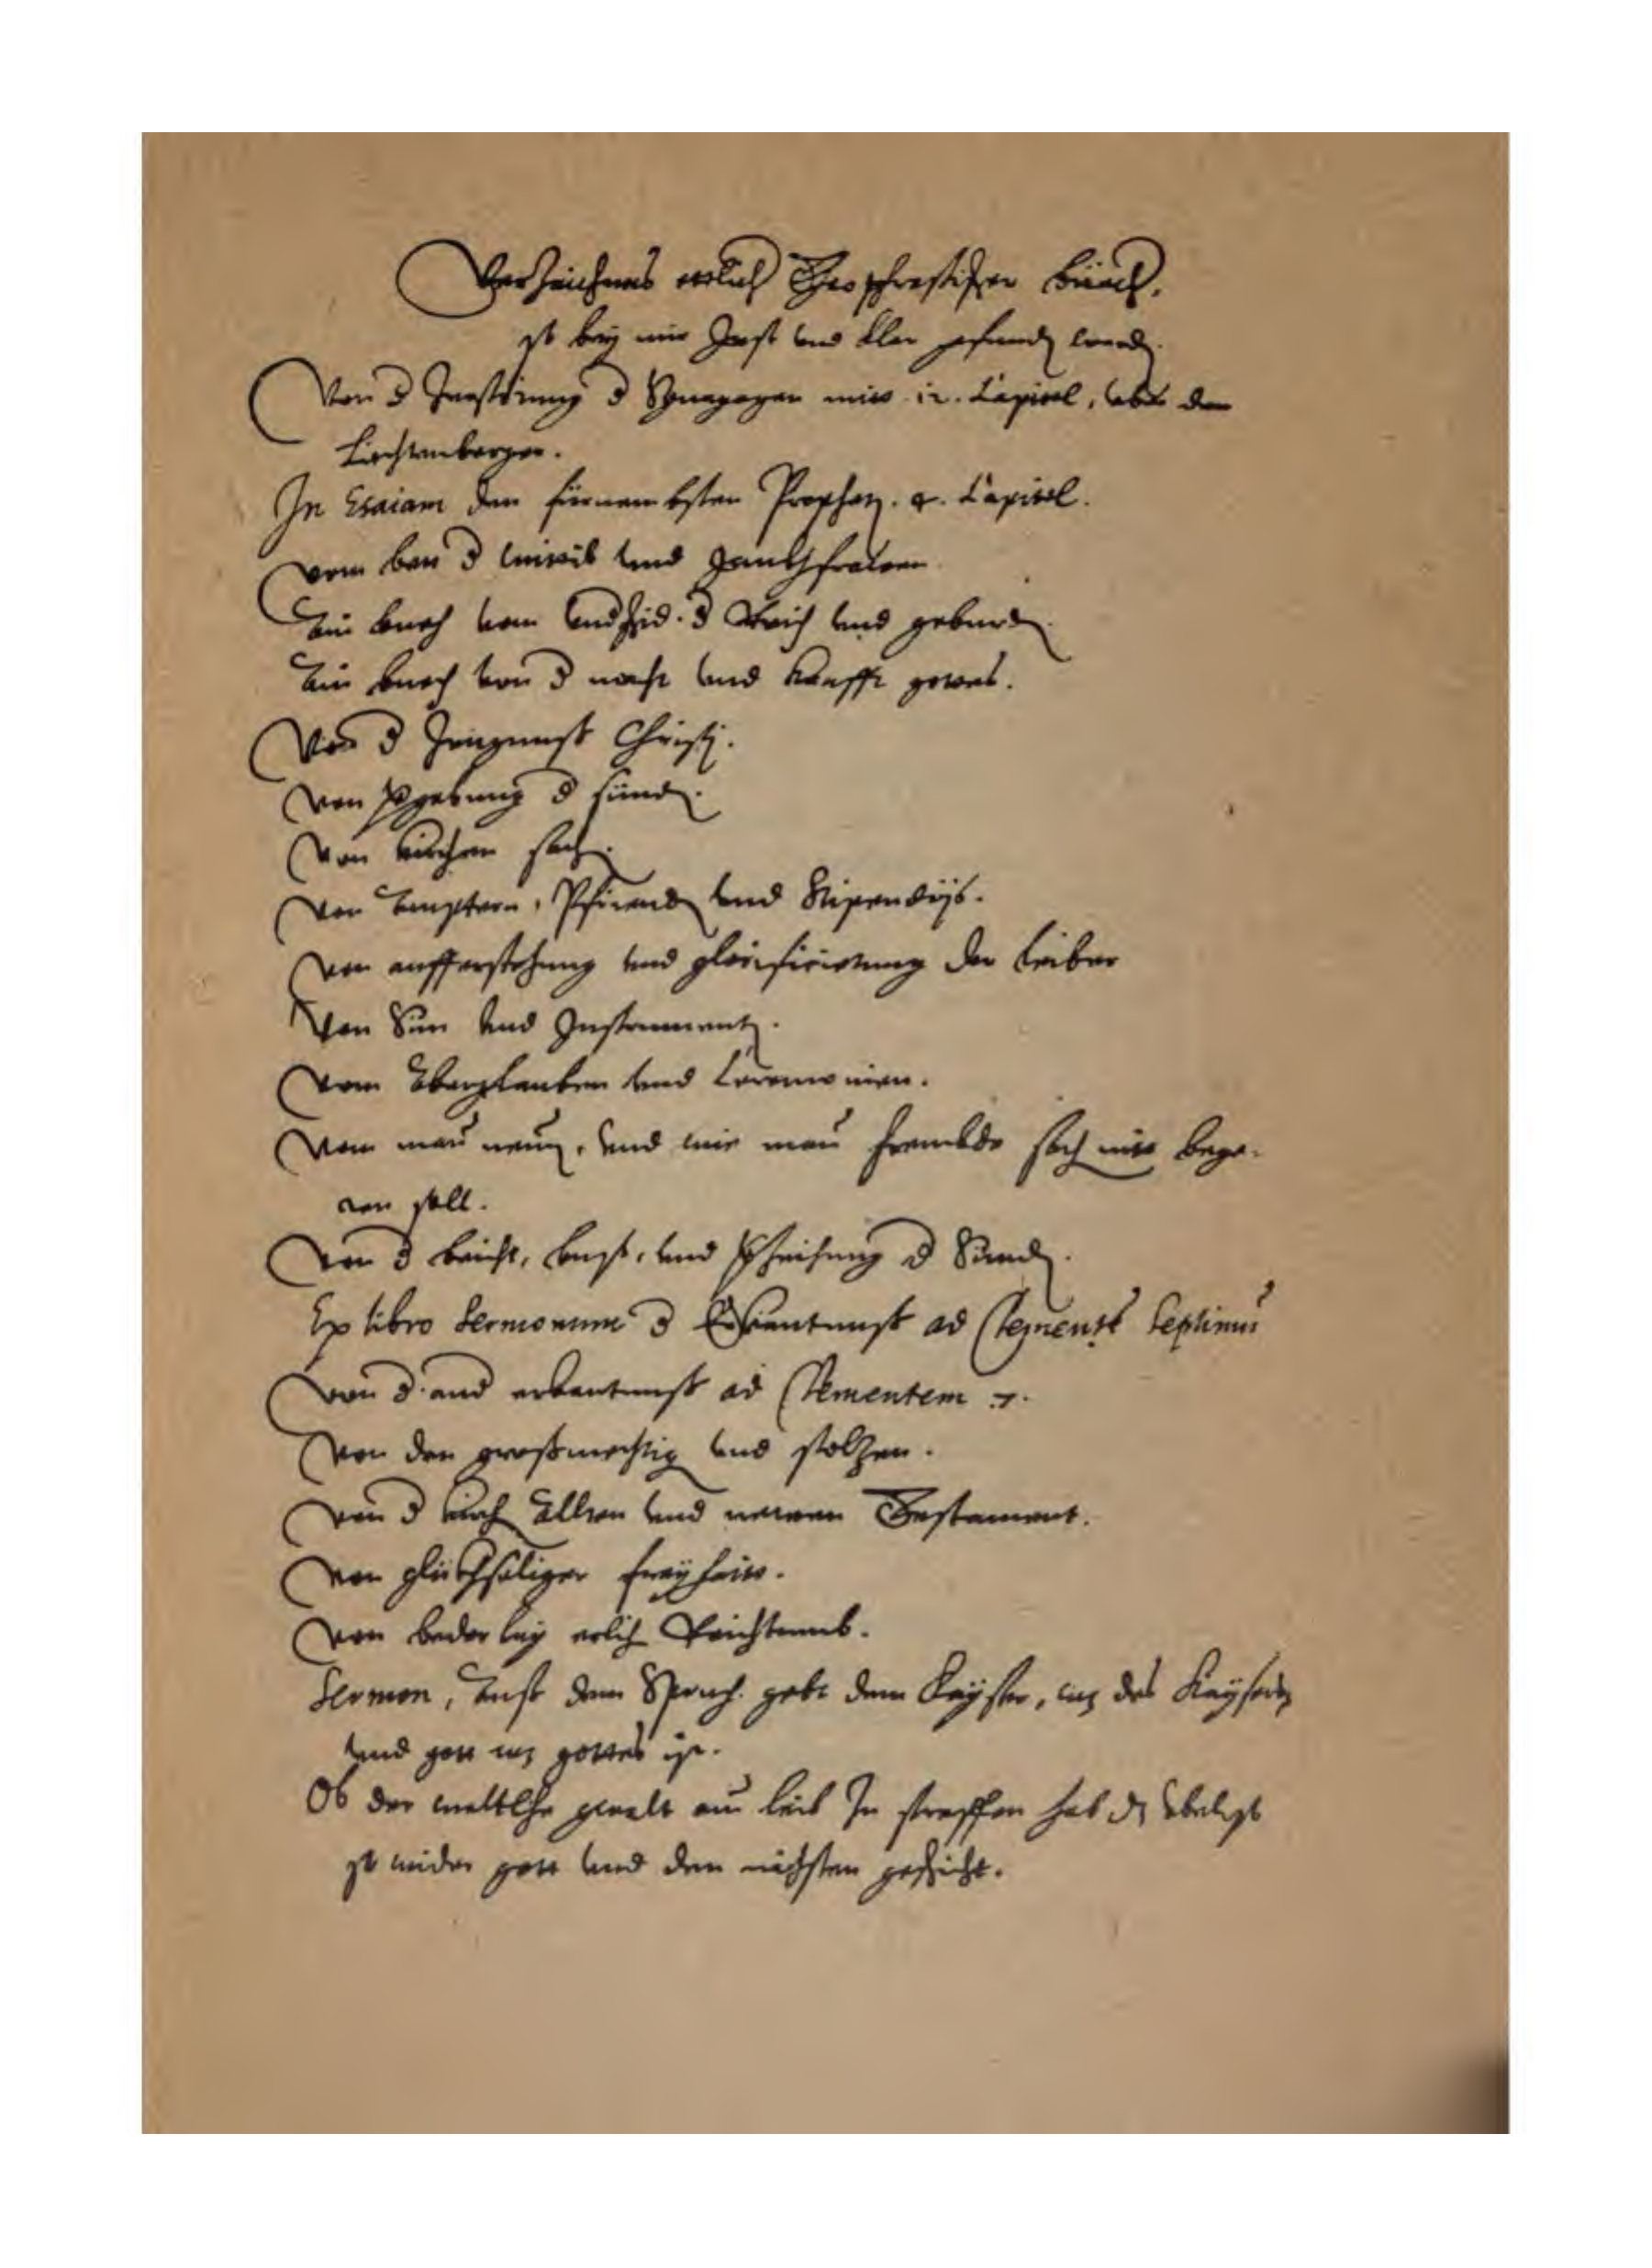 Verzeichnus etlich Theophrastischer Büech.
so bey mir Jost und Klar gefunden werden.
Von d Zerstörung d Synagogen mitt 12. Capitel, uber den
Liechtenberger.
In Esaiam den fürnembsten Propheten. Capitel.
vom ban d und
Ein buoch vom undscheid. d Reich und geburden.
Ein buoch von d nacht und krafft gottes.
Von d Zeugnust Christi.
Von vgebung d sünden.
Von kirchen sachen.
Von Emptern, Pfruenden und Stipendijs.
Von aufferstehung und glorificierung der Leiber
Von Sinn und Instrumenten.
Vom Aberglauben und Ceremonien.
Vom mein und wie man frembde sachen nitt bege-
ren soll.
Von d beicht, buoß, und vzeihung d Sünden.
Ex libro Sermonum d Erkantnust ad Clementē Septimū
Von d. and erkantnust ad Clementem 7.
Von den großmechtigen und stolzen.
Von d kirchen Alten und newen Testament.
Von glückhseliger freyheit.
Von bederley erlichen Reichtumb.
Sermon, Auß dem Spruch. gebt dem Kayser, wz des Kaysers,
und gott wz gottes ist.
Ob der weltlche gwalt am leib Zu straffen hab dz
so wider gott und den nächsten geschicht.